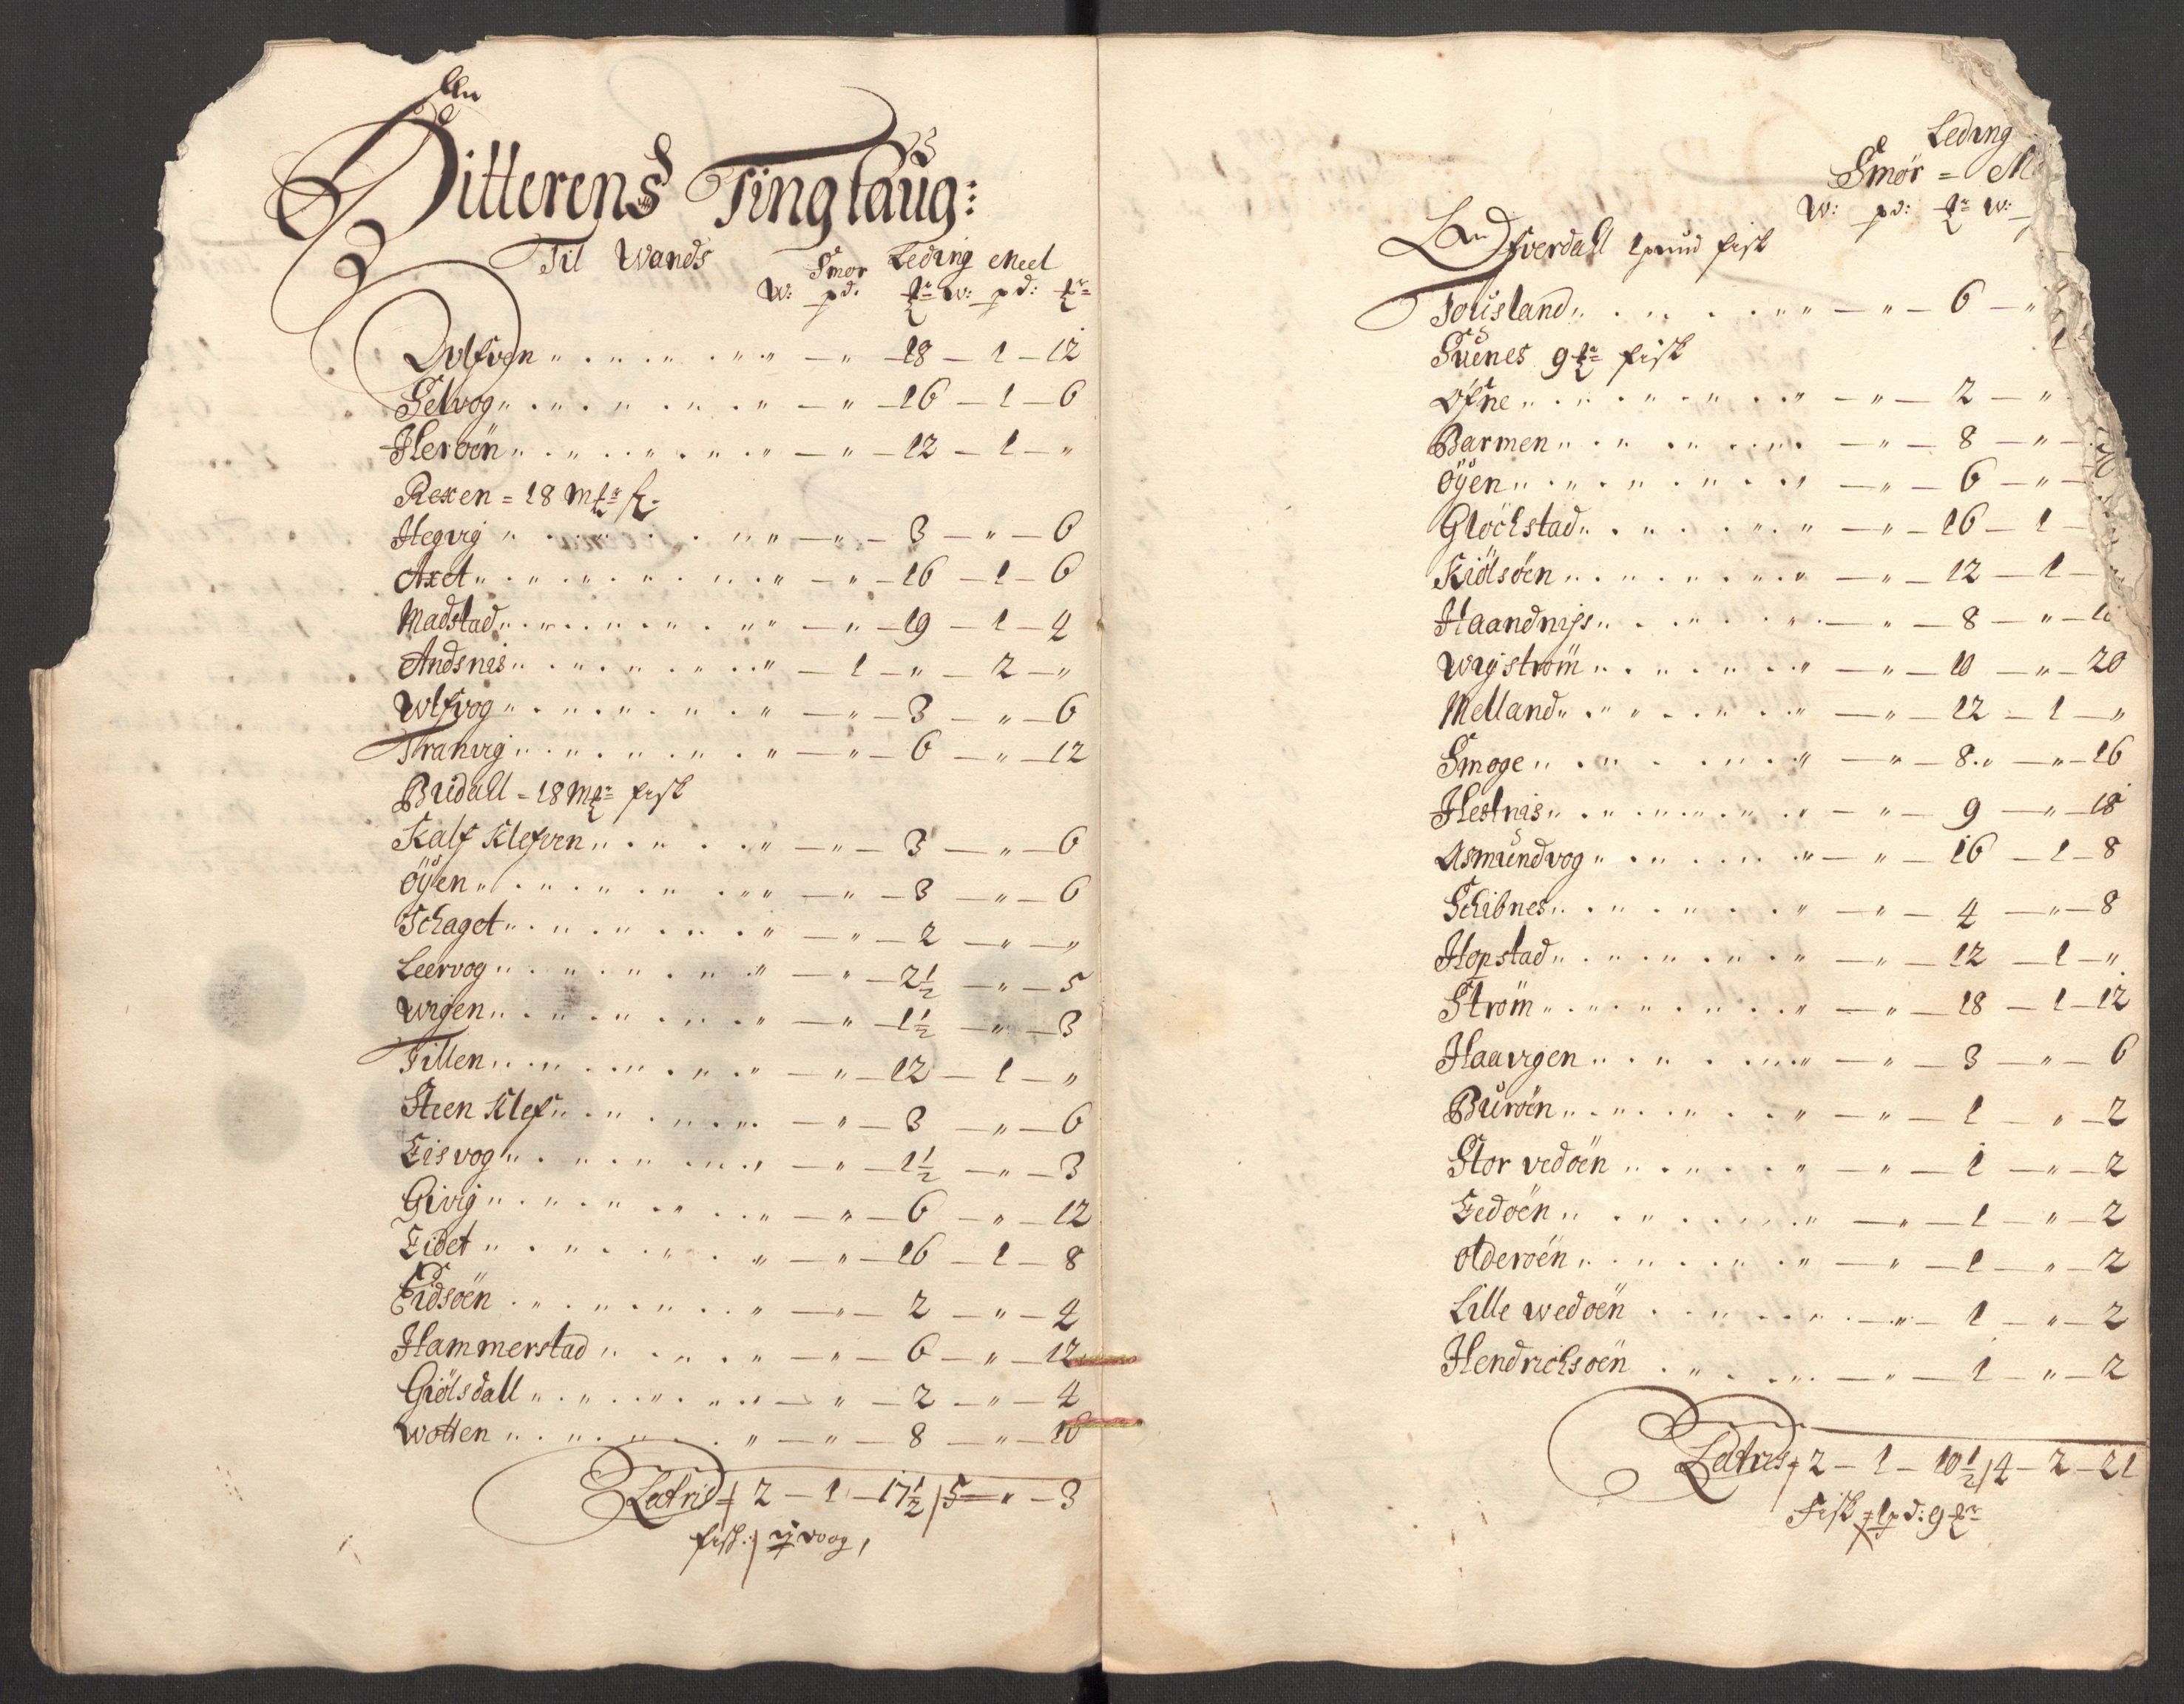 Hitterens Tinglaug:
Til Wands Smør Leding Meel
W: pd: W: pd:
Dolfven „ — „ — 18 — 1 — 12
Selvog „ — „ — 16 — 1 — 6
Herøen „ — „ — 12 — 1 — „
Rexen = 18 m
Hegvig „ — „ — 3 — „ — 6
Axet „ — „ — 16 — 1 — 6
Madstad „ — „ — 19 — 1 — 4
Andsnis „ — 1 — „ — 2 — „
Wlfvog „ — „ — 3 — „ — 6
Tranvig „ — „ — 6 — „ — 12
Budall = 18 m fisk
Kalf Klefven „ — „ — 3 — „ — 6
Øyen „ — „ — 3 — „ — 6
Schaget „ — „ — 2 — „ — „
Leervog „ — „ — 2½ — „ — 5
Wigen „ — „ — 1½ — „ — 3
Fillen „ — „ — 12 — 1 — „
Steen Klef „ — „ — 3 — „ — 6
Eisvog „ — „ — 1½ — „ — 3
Givig „ — „ — 6 — „ — 12
Eidet „ — „ — 16 — 1 — 8
Eidsøen „ — „ — 2 — „ — 4
Hammerstad „ — „ — 6 — „ — 12
Giølsdall „ — „ — 2 — „ — 4
Wotten „ — „ — 8 — „ — 16
2 — 1 — 17½ / 5 — „ — 3
fisk: voog,
Leding
Smør = M
W: pd: W:
Ulfverdall 1 pund fisk
Tousland „ — „ — 6 — „
Suenes 9 fisk
Øfne „ — „ — 2 — „
Barmen „ — „ — 8 — „
Øyen „ — „ — 6 — „
Gløchstad „ — „ — 16 — 1
Kiølsøen „ — „ — 12 — 1
Haandnis „ — „ — 8 — „
Wigstrøm „ — „ — 10 — „ — 20
Melland „ — „ — 12 — 1 — „
Smoge „ — „ — 8 — „ — 16
Hestnis „ — „ — 9 — „ — 18
Asmundvog „ — „ — 16 — 1 — 8
Schibnes „ — „ — 4 — „ — 8
Hopstad „ — „ — 12 — 1 — „
Strøm „ — „ — 18 — 1 — 12
Haavigen „ — „ — 3 — „ — 6
Burøen „ — „ — 1 „ — 2
Stor vedøen „ — „ — 1 — „ — 2
Fedøen „ — „ — 1 — „ — 2
Olderøen „ — „ — 1 — „ — 2
Lille wedøen — „ — 1 — „ — 2
Hendrichsøen — „ — 1 — „ — 2
2 — 1 — 10½ / 4 — 2 — 21
Fisk 1 pd: 9